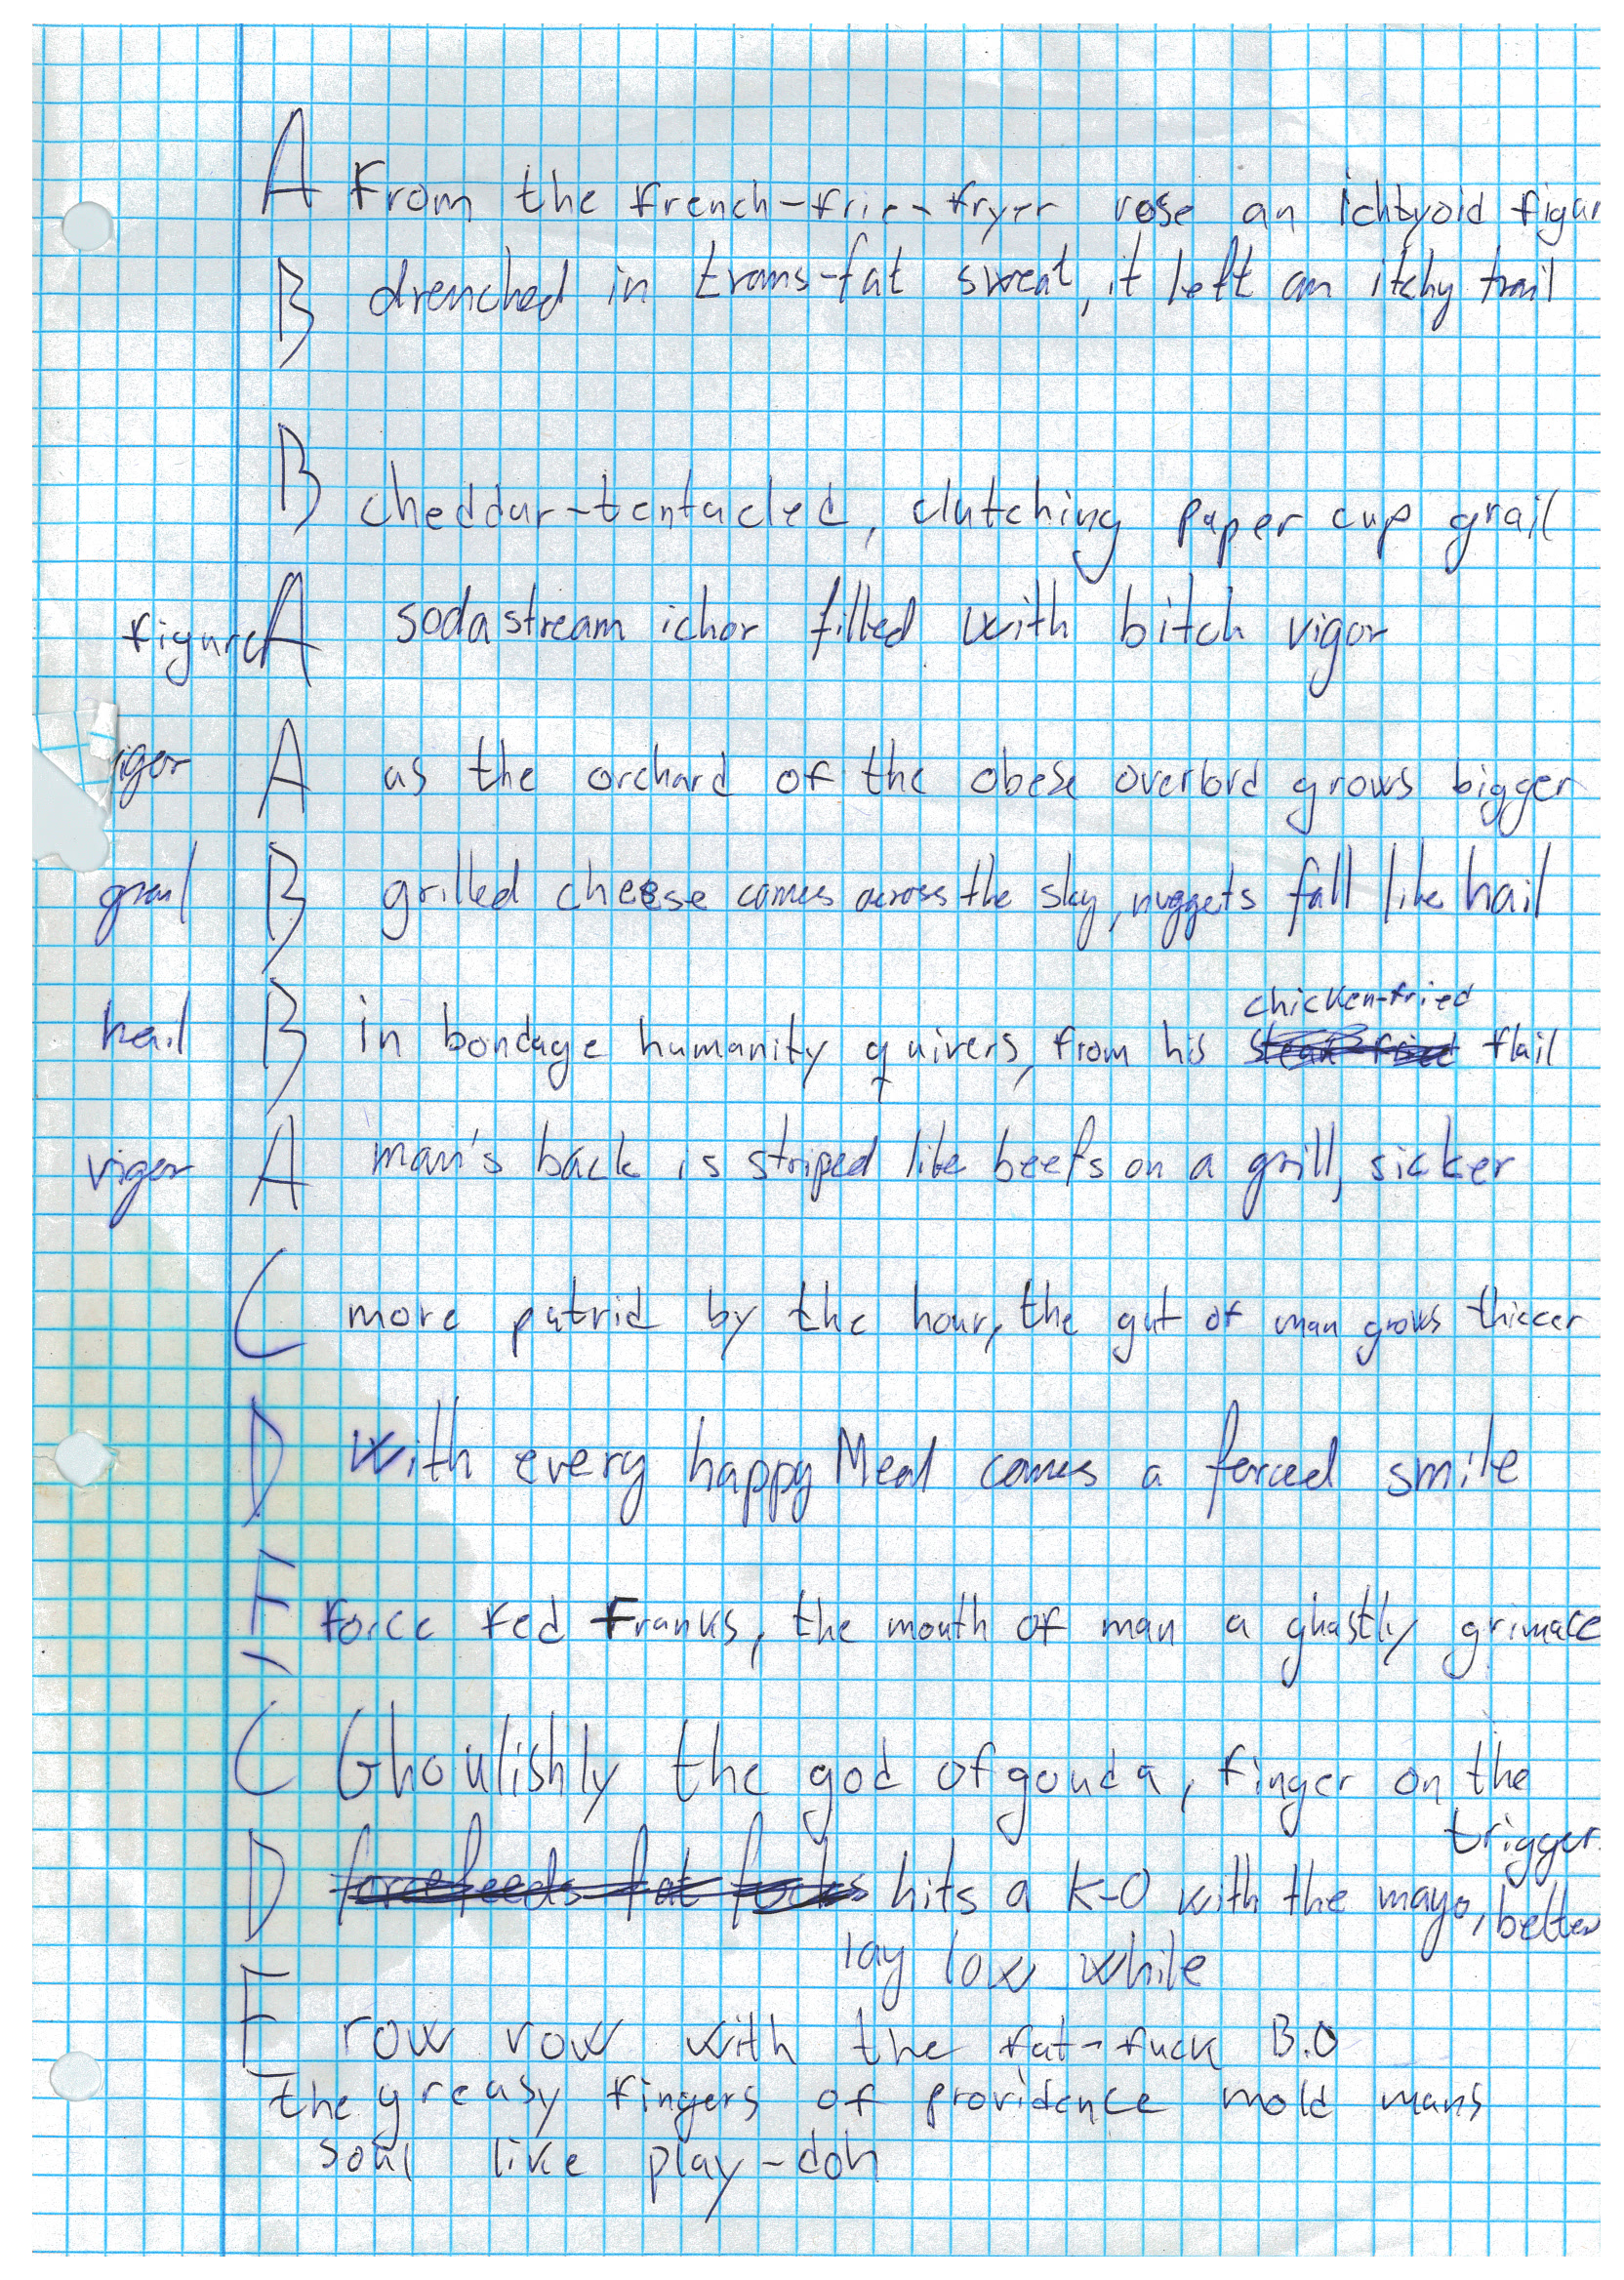 A From the french-frie-fryer rose an ichtyoid figur
B drenched in trans-fat sweat, it left an itchy trail
B cheddar-tentacled, clutching paper cup grail
figure A sodastream ichor filled with bitch vigor
igor A as the orchard of the obese overlord grows bigger
grail B grilled cheese comes across the sky, nuggets fall like hail
chicken-fried
hail B in bondage humanity quivers, from his steak fried flail
vigor A man's back is striped like beefs on a grill, sicker
C more putrid by the hour, the gut of man grows thiccer
D with every happy Meal comes a forced smile
E force fed franks, the mouth of man a ghastly grimace
C Ghoulishly the god of gouda, finger on the
trigger.
D forcefeeds fat fucks hits a K-O with the mayo, better
lay low while
E row row with the fat-fuck B.O
the greasy fingers of providence mold mans
soul like play-doh